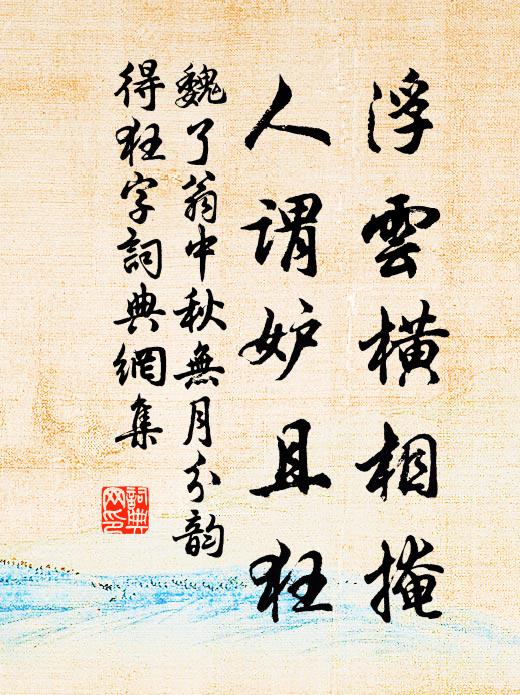 浮雲橫相掩
人謂妒且狂
魏了翁中秋無月分韵
得狂字詞典網集
詞典
网印